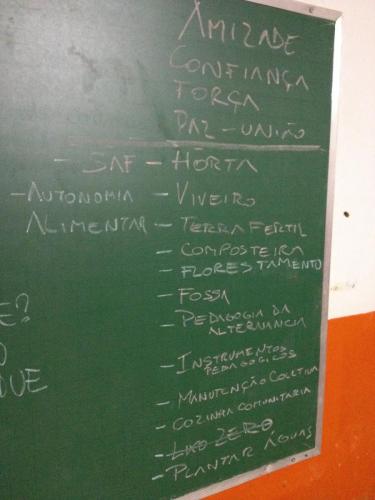 AMIZADE
CONFIANÇA
FORÇA
PAZ - UNIÃO
- SAF - HORTA
- AUTONOMIA - VIVEIRO
ALIMENTAR - TERRA FERTIL
- COMPOSTEIRA
- FLORESTAMENTO
- FOSSA
- PEDAGOGIA DA
ALTERNANCIA
- INSTRUMENTOS
PEDAGOGICOS
- MANUTENÇÃO COLETIVA
- COZINHA COMUNITARIA
- LIXO ZERO
- PLANTAR ÁGUAS
E?
O
QUE